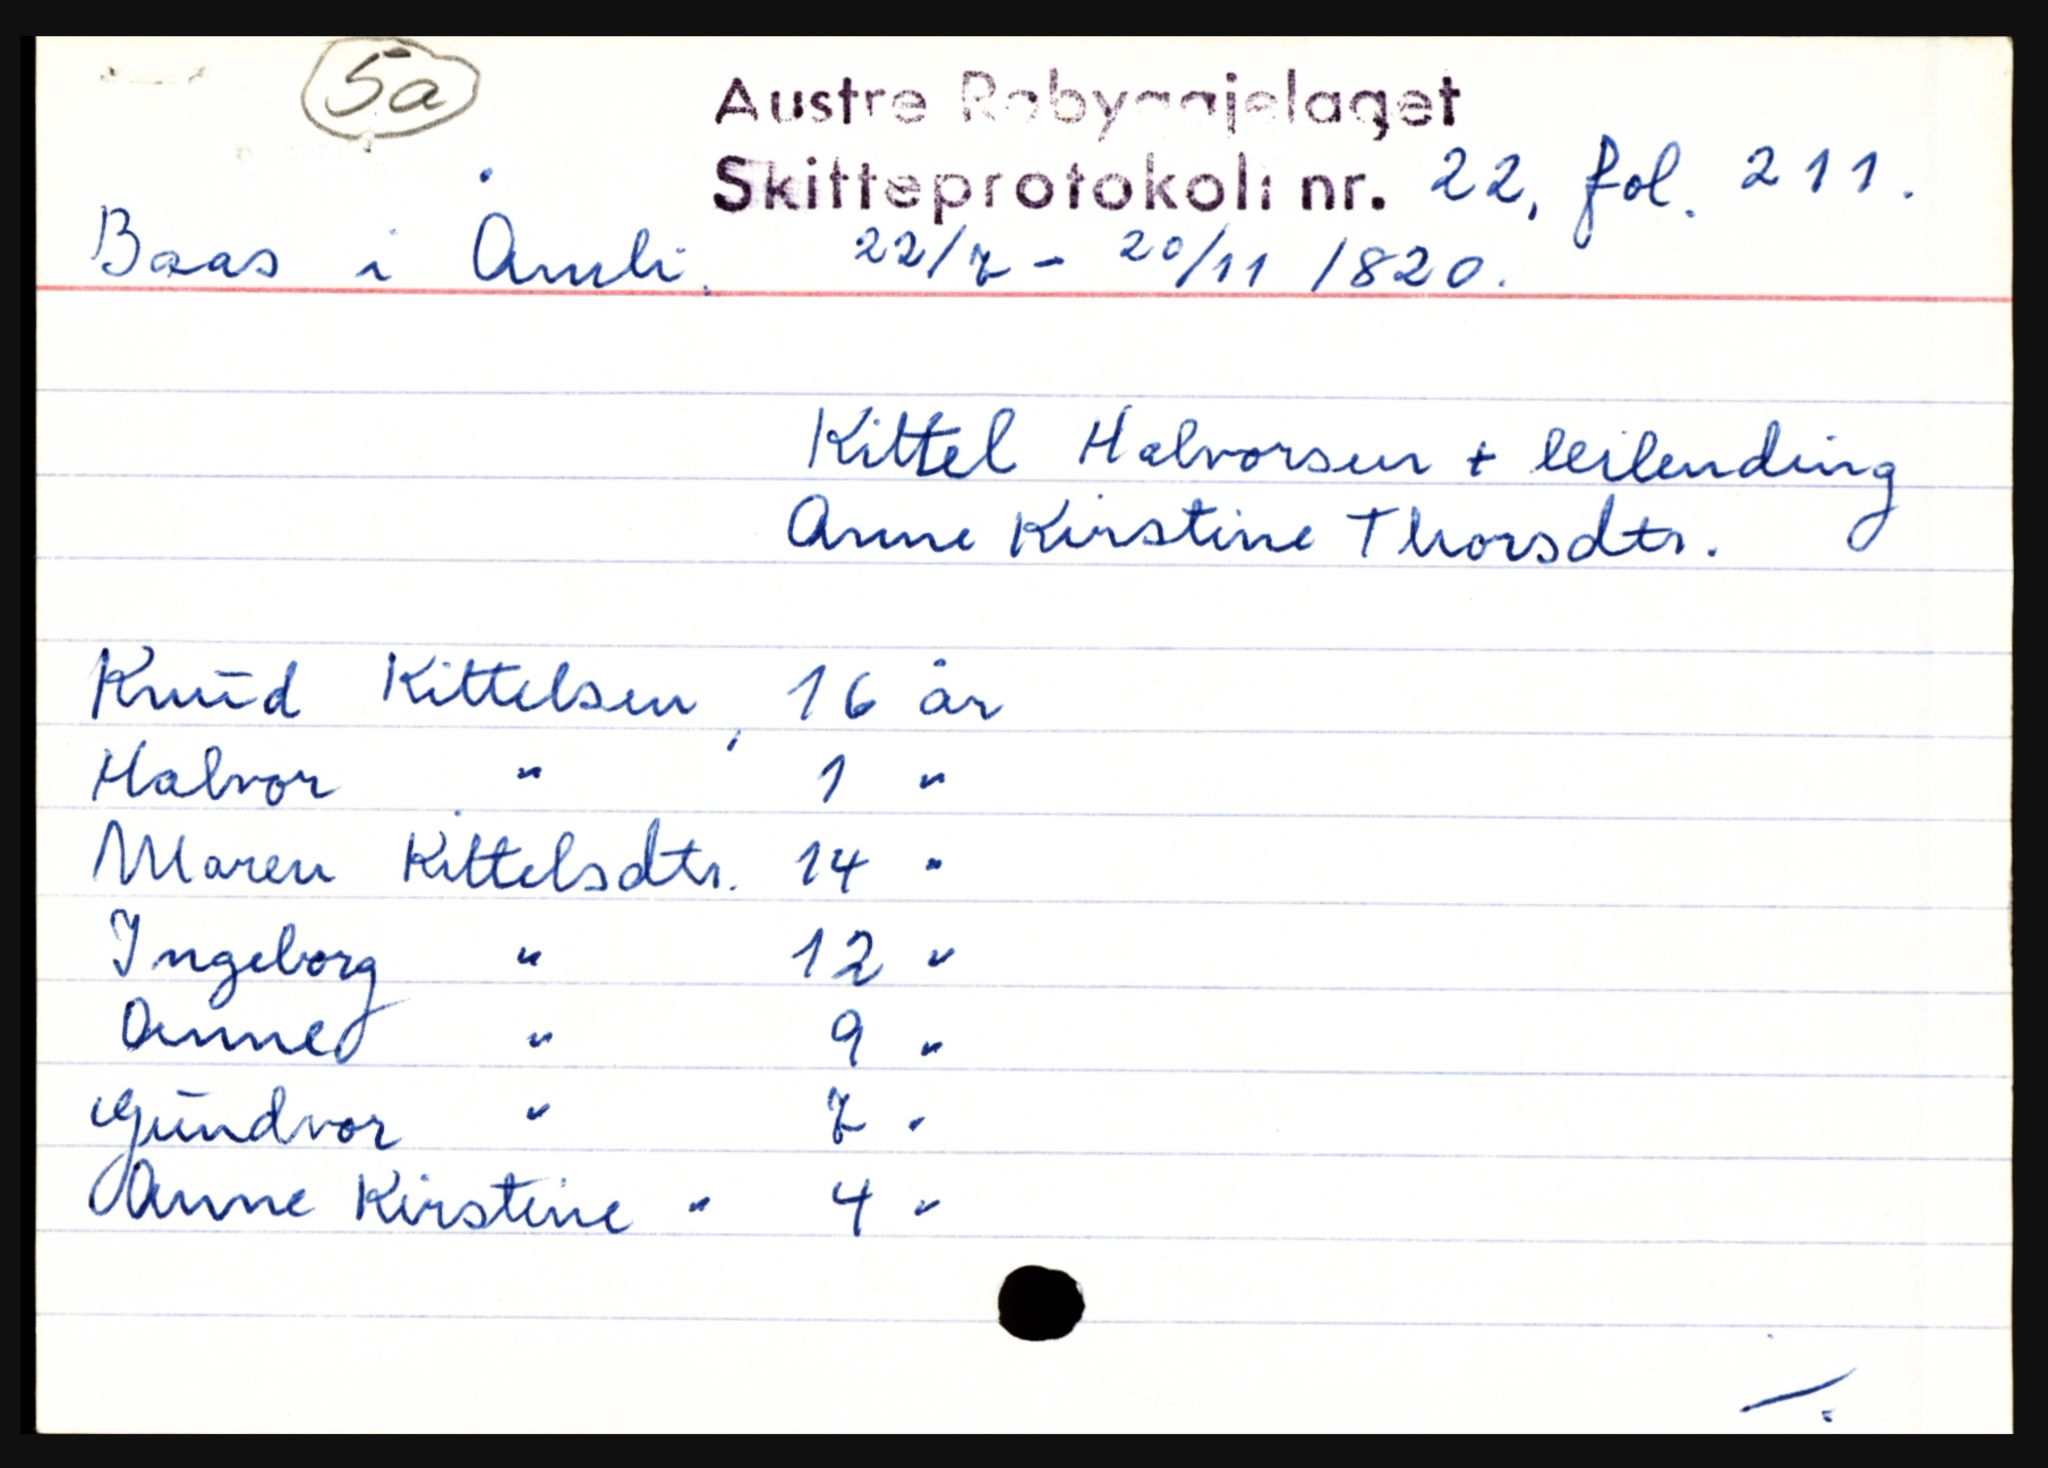 5a
Austre Robyggjelaget
Skifteprotokoll nr. 22, fol. 211.
Baas i Åmli. 22/7 - 20/11 1820.
Kittel Halvorsen + leilending
Anne Kirstine Thorsdtr.
Knud Kittelsen, 16 år
Halvor " 1 "
Maren Kittelsdtr. 14 "
Ingeborg " 12 "
Anne " 9 "
Gundvor " 7 "
Anne Kirstine " 4 "